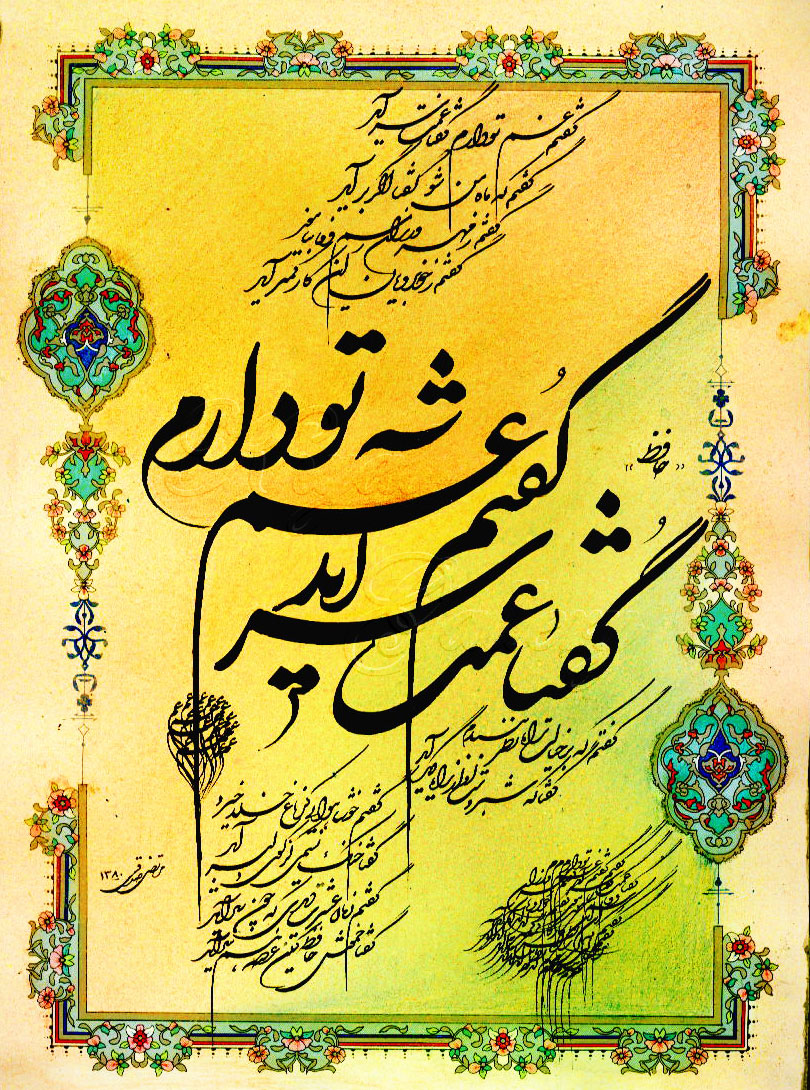 گفتم غم تو دارم گفتا غمت سر آید
گفتم که ماه من شو گفتا اگر برآید
گفتم ز مهرورزان رسم وفا بیاموز
ز خوبرویان این کار کمتر آید
گفتم غم تو دارم
«حافظ»
گفتا غمت سر آید
گفتم که بر خیالت راه نظر ببندم
گفتا که شبرو است او از راه دیگر آید
گفتم خوشا هوایی کز باغ خلد خیزد
گفتا خنک نسیمی کز کوی دلبر آید
گفتم زمان عشرت دیدی که چون سرآمد
گفتا خموش حافظ کاین غصه هم سر آید
مرتضی ۱۳۸۰